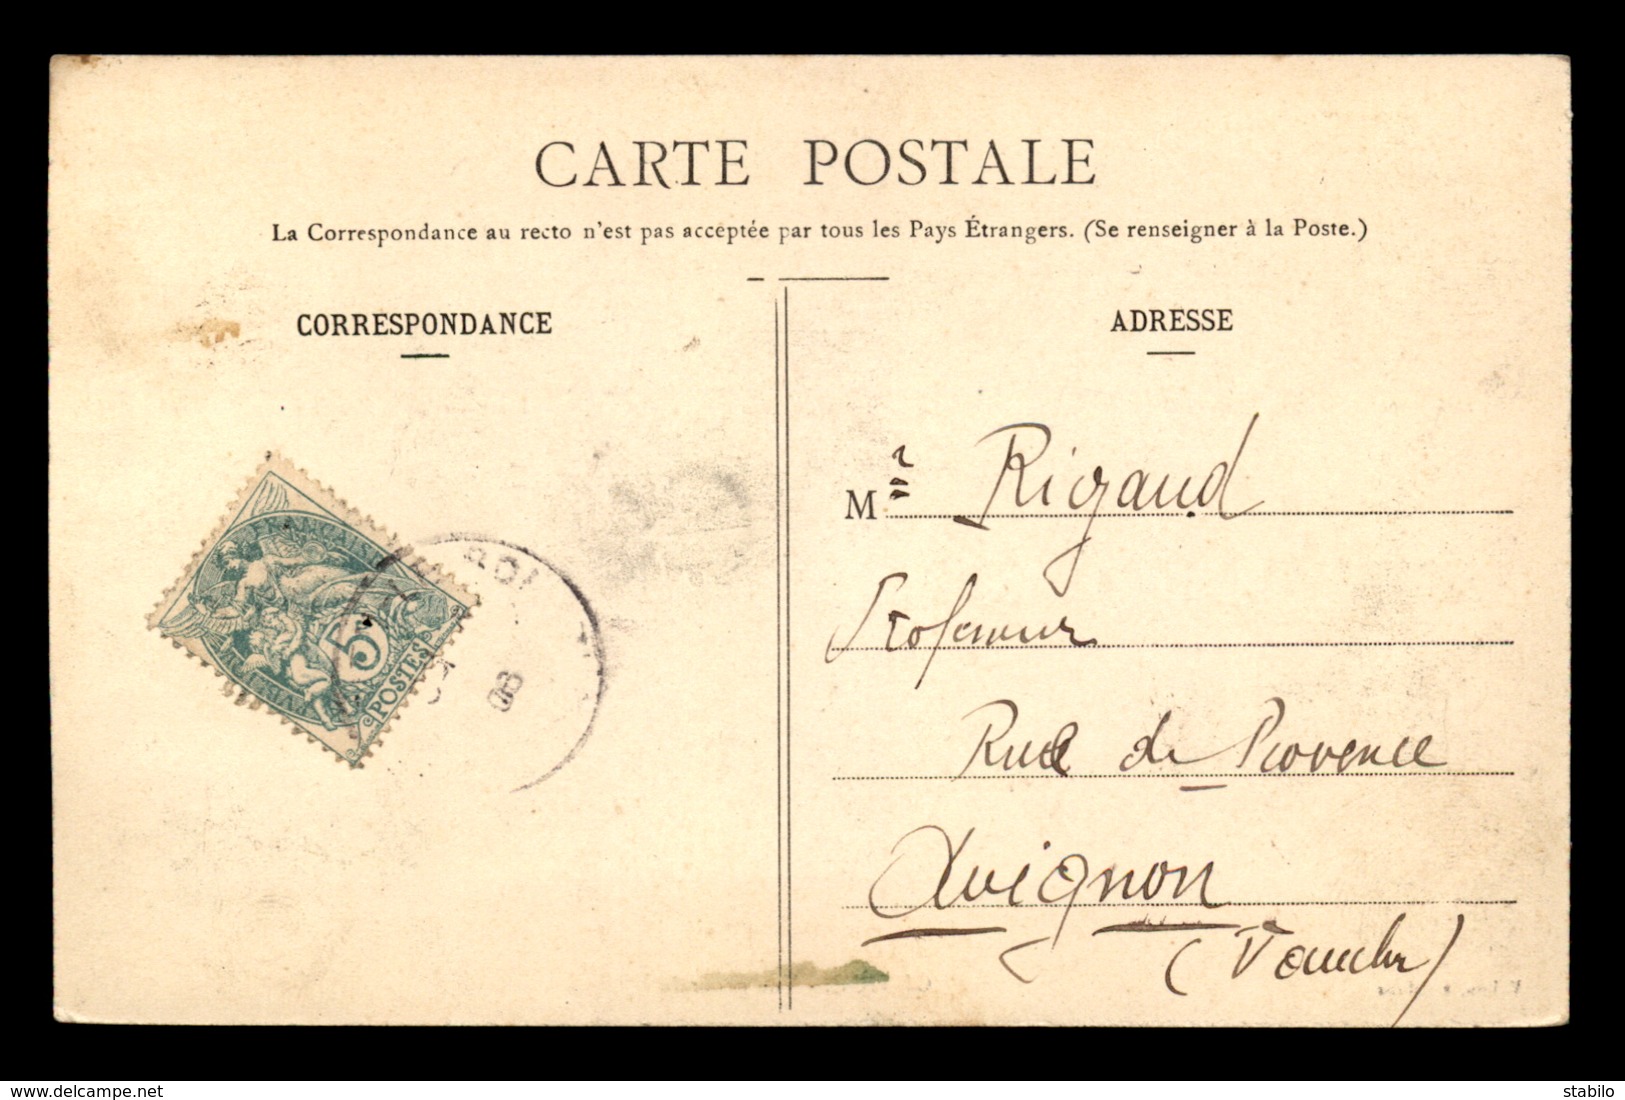 CARTE POSTALE
La Correspondance au recto n'est pas acceptée par tous les Pays Étrangers. (Se renseigner à la Poste.)
CORRESPONDANCE
ADRESSE
Mr Rigaud
Professeur
Rue de Provence
Avignon
(Vaucluse)
FRANÇAISE
5
POSTES
08
https://www.delcampe.net
stabilo